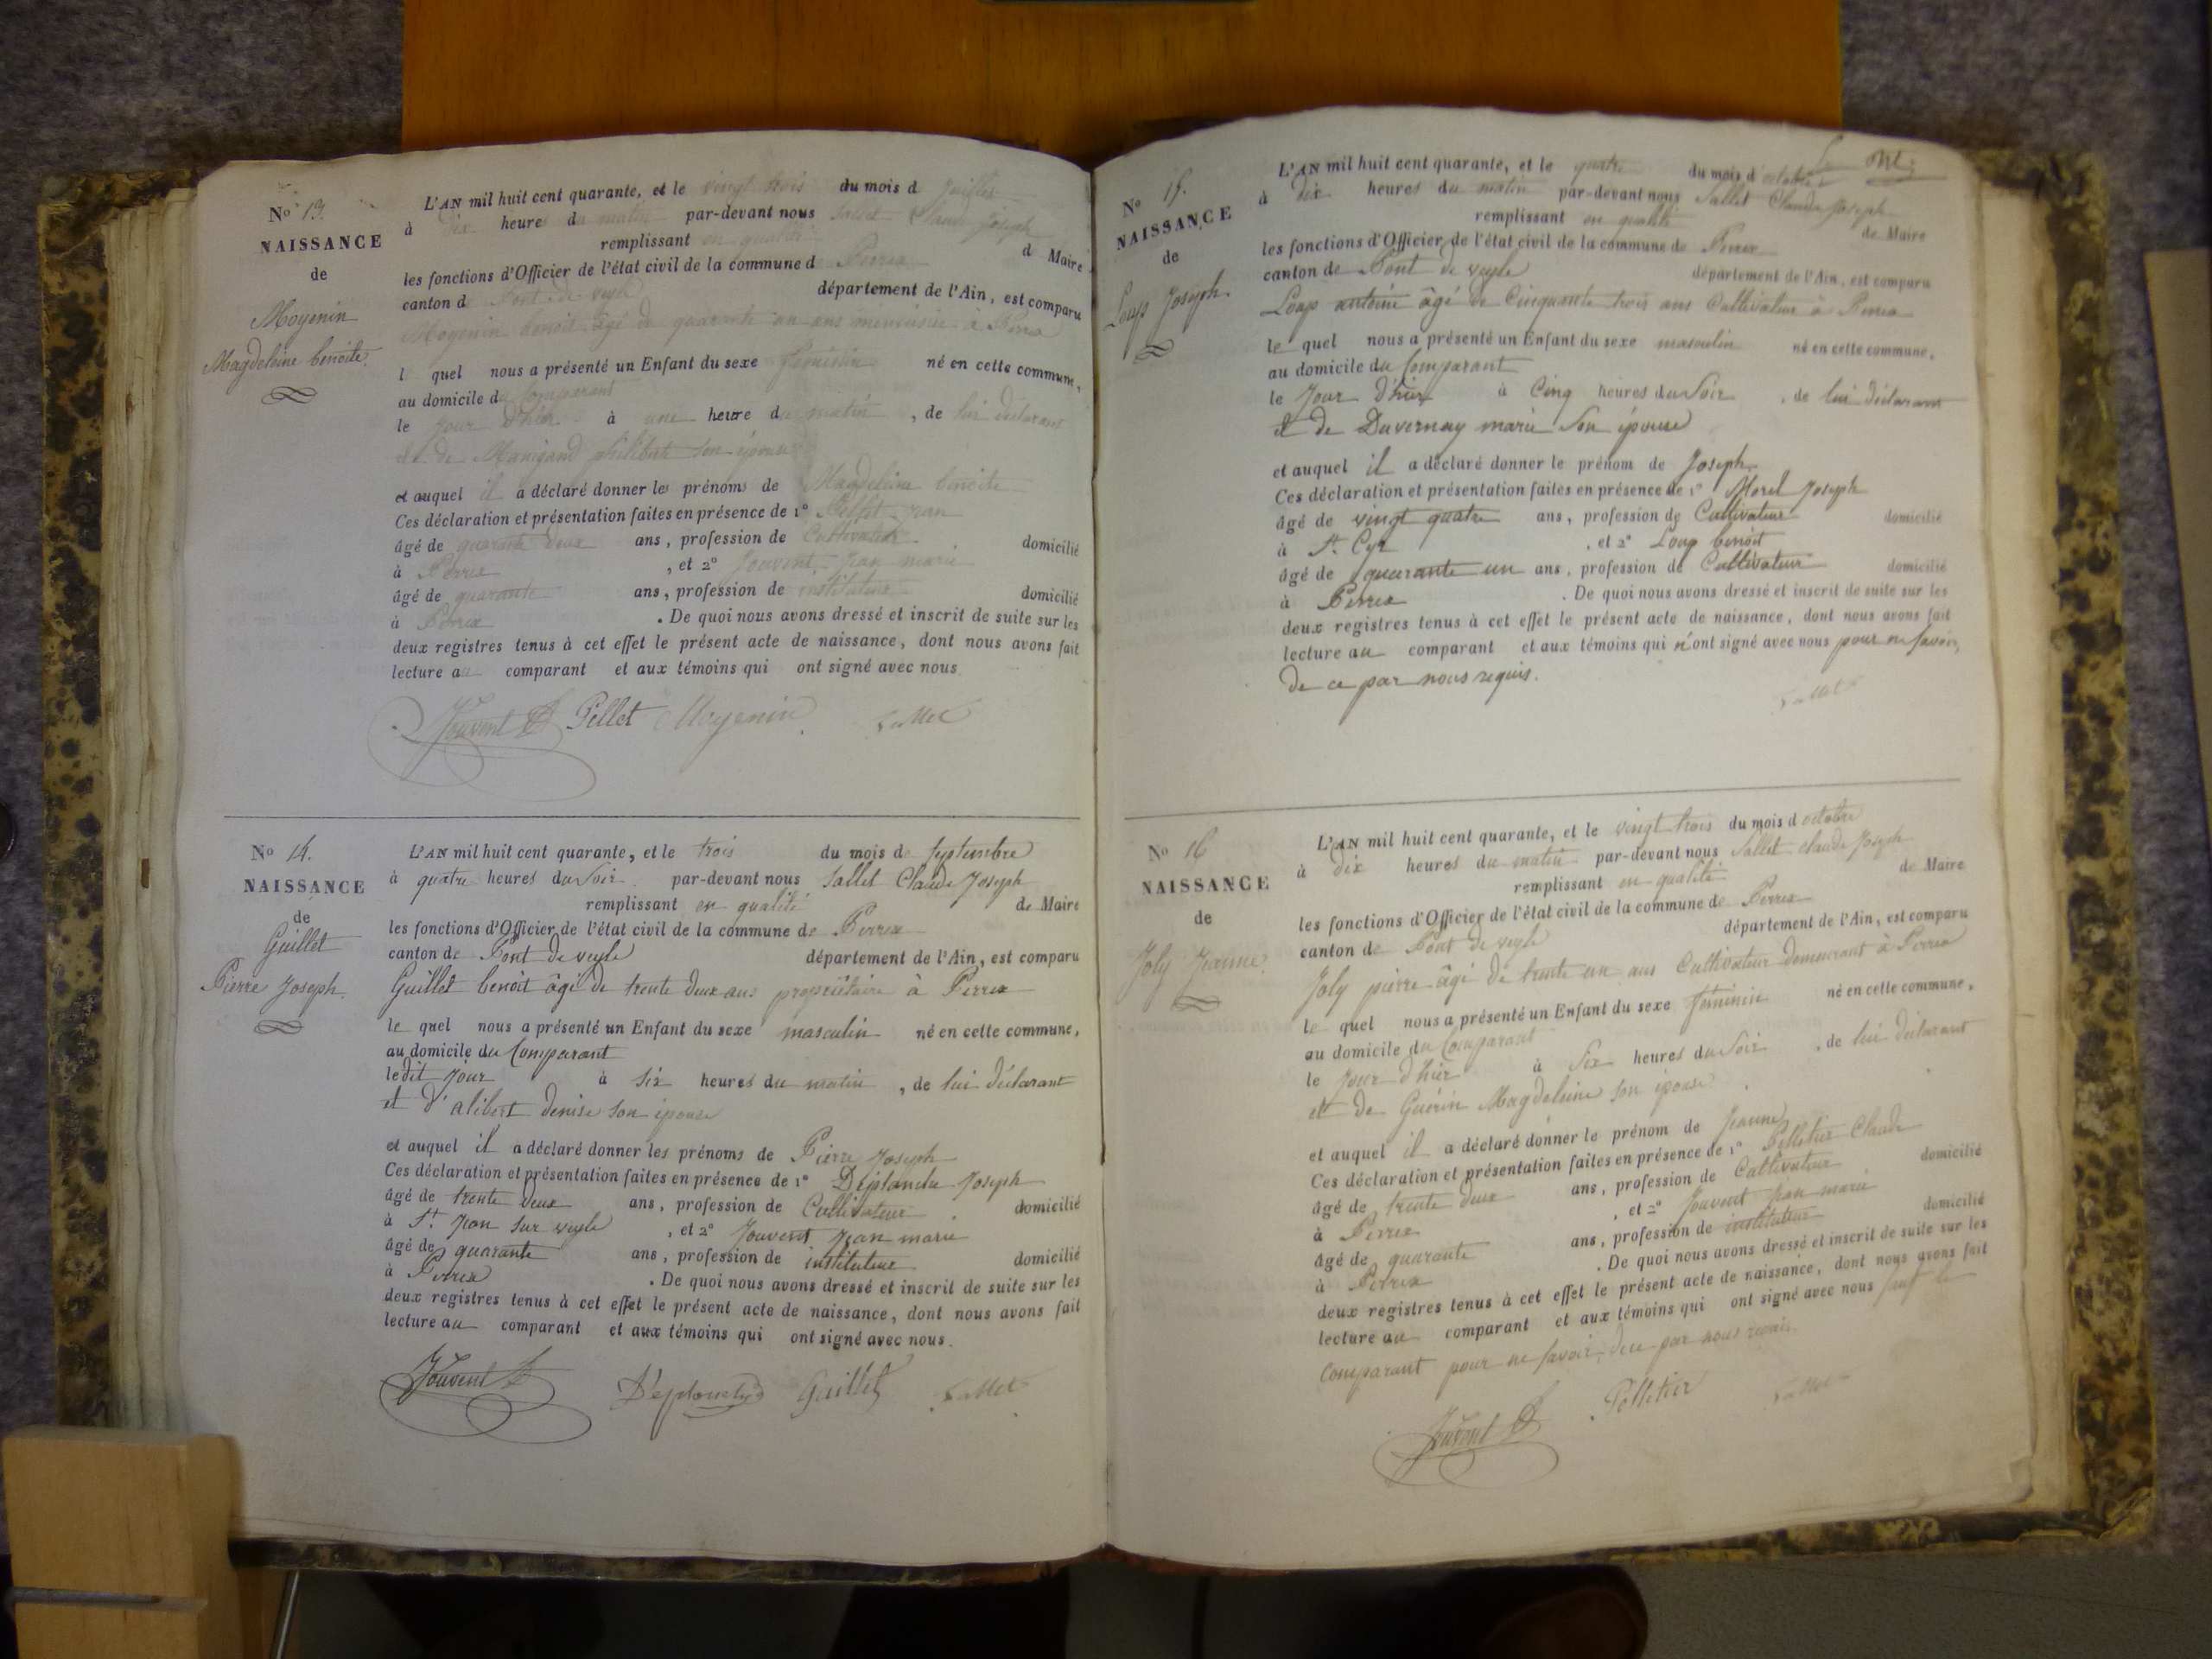 No 13.
NAISSANCE
de
Moyenin
Magdeleine benoite.
L'AN mil huit cent quarante, et le vingt trois du mois d Juillet
à dix heure du matin par-devant nous Sallet Claude Joseph
remplissant en qualité d Maire
les fonctions d'Officier de l'état civil de la commune d Perrex
canton d Pont de veyle département de l'Ain, est comparu
Moyenin benoit âgé de quarante un ans menuisier à Perrex
l quel nous a présenté un Enfant du sexe féminin né en cette commune,
au domicile du Comparant
le jour d'hier à une heure du matin, de lui déclarant
et de Manigand philiberte son épouse
et auquel il a déclaré donner les prénoms de Magdeleine benoite
Ces déclaration et présentation faites en présence de 1° Pellet Jean
âgé de quarante deux ans, profession de Cultivateur domicilié
à Perrex, et 2° Jouvent Jean marie
âgé de quarante ans, profession de instituteur domicilié
à Perrex. De quoi nous avons dressé et inscrit de suite sur les
deux registres tenus à cet effet le présent acte de naissance, dont nous avons fait
lecture au comparant et aux témoins qui ont signé avec nous
Jouvent Pellet Moyenin Sallet
No 14.
NAISSANCE
de
Guillet
Pierre Joseph.
L'AN mil huit cent quarante, et le trois du mois de Septembre
à quatre heures du Soir par-devant nous Sallet Claude Joseph
remplissant en qualité de Maire
les fonctions d'Officier de l'état civil de la commune de Perrex
canton de Pont de veyle département de l'Ain, est comparu
Guillet benoit âgé de trente deux ans propriétaire à Perrex
le quel nous a présenté un Enfant du sexe masculin né en cette commune,
au domicile du Comparant
ledit jour à six heures du matin, de lui déclarant
et d'alibert denise son épouse
et auquel il a déclaré donner les prénoms de Pierre Joseph
Ces déclaration et présentation faites en présence de 1° Joseph
âgé de trente deux ans, profession de Cultivateur domicilié
à St Jean sur veyle, et 2° Jouvent Jean marie
âgé de quarante ans, profession de instituteur domicilié
à Perrex. De quoi nous avons dressé et inscrit de suite sur les
deux registres tenus à cet effet le présent acte de naissance, dont nous avons fait
lecture au comparant et aux témoins qui ont signé avec nous.
Jouvent Guillet Sallet
No 15.
NAISSANCE
de
Loup Joseph.
L'AN mil huit cent quarante, et le quatre du mois d'octobre
à dix heures du matin par-devant nous Sallet Claude Joseph
remplissant en qualité de Maire
les fonctions d'Officier de l'état civil de la commune de Perrex
canton de Pont de veyle département de l'Ain, est comparu
Loup antoine âgé de Cinquante trois ans Cultivateur à Perrex
le quel nous a présenté un Enfant du sexe masculin né en cette commune,
au domicile du Comparant
le Jour d'hier à Cinq heures du Soir, de lui déclarant
et de Duvernay marie Son épouse
et auquel il a déclaré donner le prénom de Joseph
Ces déclaration et présentation faites en présence de 1° Morel Joseph
âgé de vingt quatre ans, profession de Cultivateur domicilié
à St Cyr, et 2° Loup benoit
âgé de quarante un ans, profession de Cultivateur domicilié
à Perrex. De quoi nous avons dressé et inscrit de suite sur les
deux registres tenus à cet effet le présent acte de naissance, dont nous avons fait
lecture au comparant et aux témoins qui n'ont signé avec nous pour ne savoir,
de ce par nous requis.
Sallet
No 16
NAISSANCE
de
Joly Jeanne.
L'AN mil huit cent quarante, et le vingt trois du mois d octobre
à dix heures du matin par-devant nous Sallet claude Joseph
remplissant en qualité de Maire
les fonctions d'Officier de l'état civil de la commune de Perrex
canton de Pont de veyle département de l'Ain, est comparu
Joly pierre âgé de trente un ans Cultivateur demeurant à Perrex
le quel nous a présenté un Enfant du sexe féminin né en cette commune,
au domicile du Comparant
le jour d'hier à Six heures du Soir, de lui déclarant
et de Guérin Magdeleine son épouse
et auquel il a déclaré donner le prénom de Jeanne
Ces déclaration et présentation faites en présence de 1° Pelletier Claude
âgé de trente deux ans, profession de Cultivateur domicilié
à Perrex, et 2° Jouvent Jean marie
âgé de quarante ans, profession de instituteur domicilié
à Perrex. De quoi nous avons dressé et inscrit de suite sur les
deux registres tenus à cet effet le présent acte de naissance, dont nous avons fait
lecture au comparant et aux témoins qui ont signé avec nous sauf le
Comparant pour ne savoir, de ce par nous requis.
Jouvent Pelletier Sallet